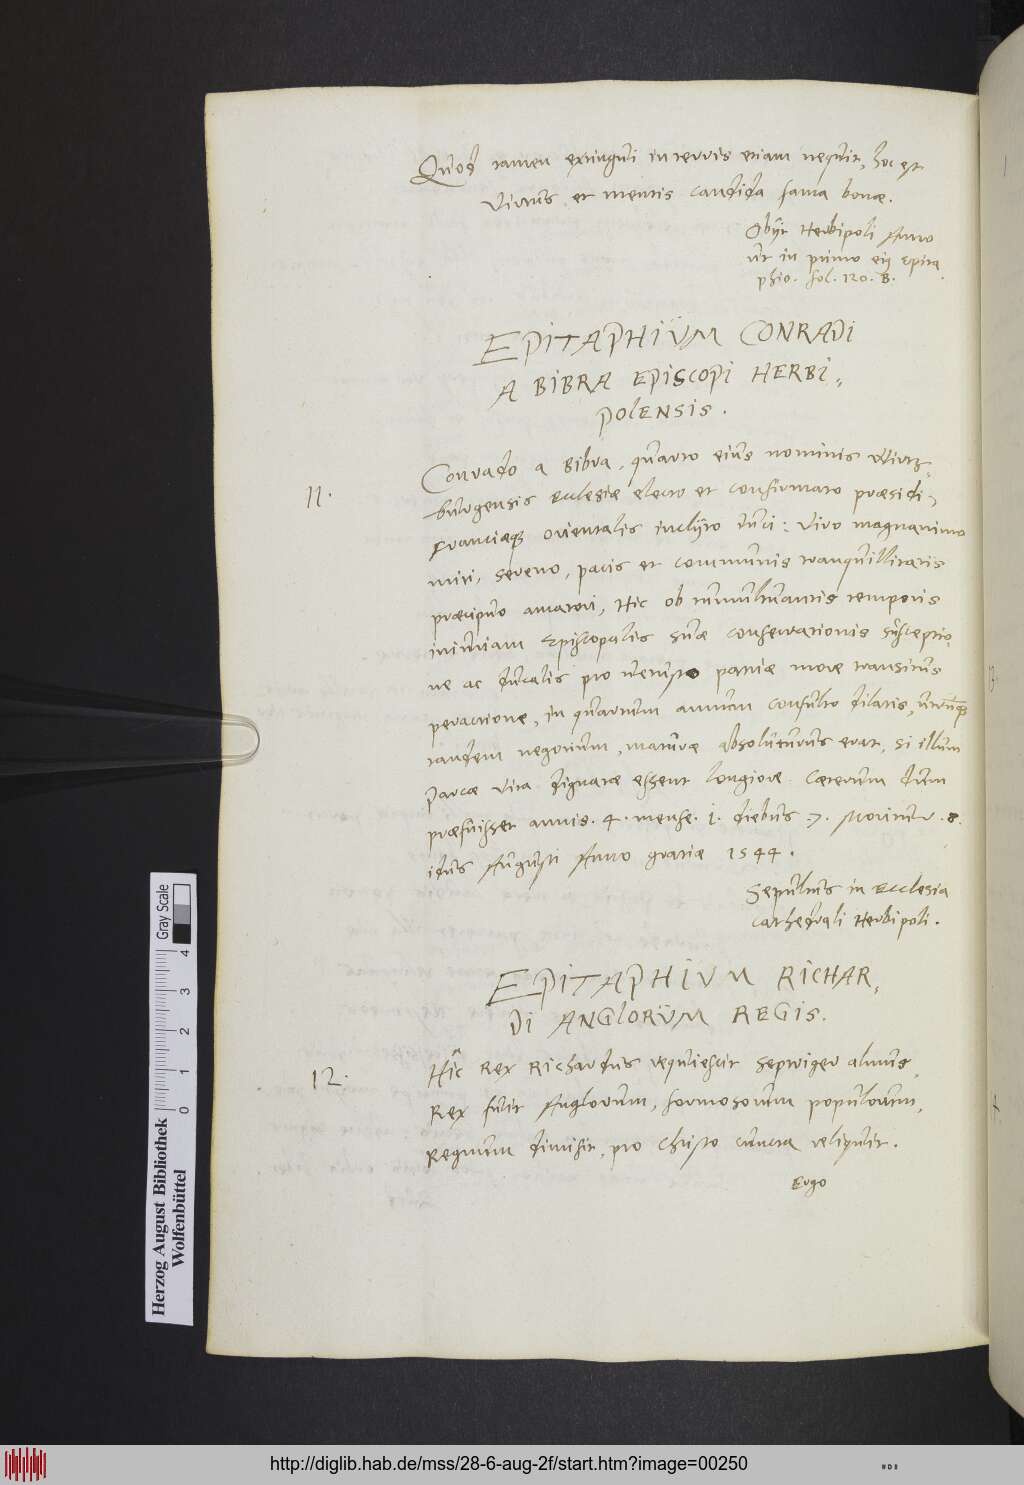 Quod tamen extingui in terris etiam nequit, hoc est
Virtus et mentis candida fama bonæ.
Obijt Herbipoli Anno
ut in primo eij epita
phio. fol. 120. B.
EPITAPHIUM CONRADI
A BIBRA EPISCOPI HERBI=
POLENSIS.
11.
Conrado a Bibra, quarto eius nominis Wirtz=
burgensis Ecclesiæ electo et confirmato præsidi,
Franciæq orientalis inclÿto duci: Viro magnanimo
miti, sereno, pacis et communis tranquillitatis
præcipuo amatori, Hic ob tumultuantis temporis
iniuriam Episcopalis suæ consecrationis susceptio=
ne ac ducalis pro vetusto patriæ more transitus
peractione, in quartum annum consulto dilatis, utrunq
tandem negotium, mature absoluturus erat, si illum
Parcæ vita dignatæ essent longiore. Cæterum dum
præfuisset annis. 4. mense. 1. diebus .7. Moritur .8.
idus Augusti Anno gratiæ 1544.
Sepultus in Ecclesia
cathedrali Herbipoli.
EPITAPHIUM RICHAR=
DI ANGLORUM REGIS.
12.
Hîc Rex Richardus requiescit sceptriger almus,
Rex fuit Anglorum, formosorum populorum,
Regnum dimisit, pro Christo cuncta reliquit.
Ergo
Herzog August Bibliothek
Wolfenbüttel
0 1 2 3 4
Gray Scale
http://diglib.hab.de/mss/28-6-aug-2f/start.htm?image=00250